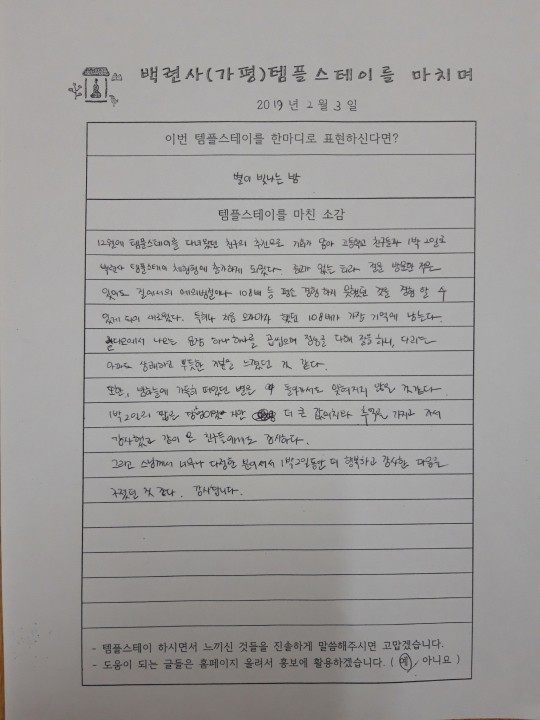 백련사(가평)템플스테이를 마치며
2019년 2월 3일
이번 템플스테이를 한마디로 표현하신다면?
별이 빛나는 밤
템플스테이를 마친 소감
12월에 템플스테이를 다녀왔던 친구의 추천으로 기회가 닿아 고등학교 친구들과 1박2일로
백련사 템플스테이 체험형에 참가하게 되었다. 종교가 없는 터라 절을 방문한 적은
있어도 절에서의 예의범절이나 108배 등 평소 경험하지 못했던 것을 경험 할 수
있게 되어 새로웠다. 특히나 처음 도전 했던 108배가 가장 기억에 남는다.
라디오에서 나오는 음성 하나하나를 곱씹으며 정성을 다해 절을 하니, 다리는
아파도 상쾌하고 뿌듯한 기분을 느꼈던 것 같다.
또한, 밤하늘에 가득히 떠있던 별은 돌아가서도 잊혀지지 않을 것 같다.
1박2일의 짧은 지만 더 큰 값어치의 추억을 가지고 가서
감사했고 같이 온 친구들에게도 감사하다.
그리고 스님께서 너무나 다정한 분이셔서 1박2일동안 더 행복하고 감사한 마음을
가졌던 것 같다. 감사합니다.
- 템플스테이 하시면서 느끼신 것들을 진솔하게 말씀해주시면 고맙겠습니다.
- 도움이 되는 글들은 홈페이지 올려서 홍보에 활용하겠습니다. ( 예, 아니요 )